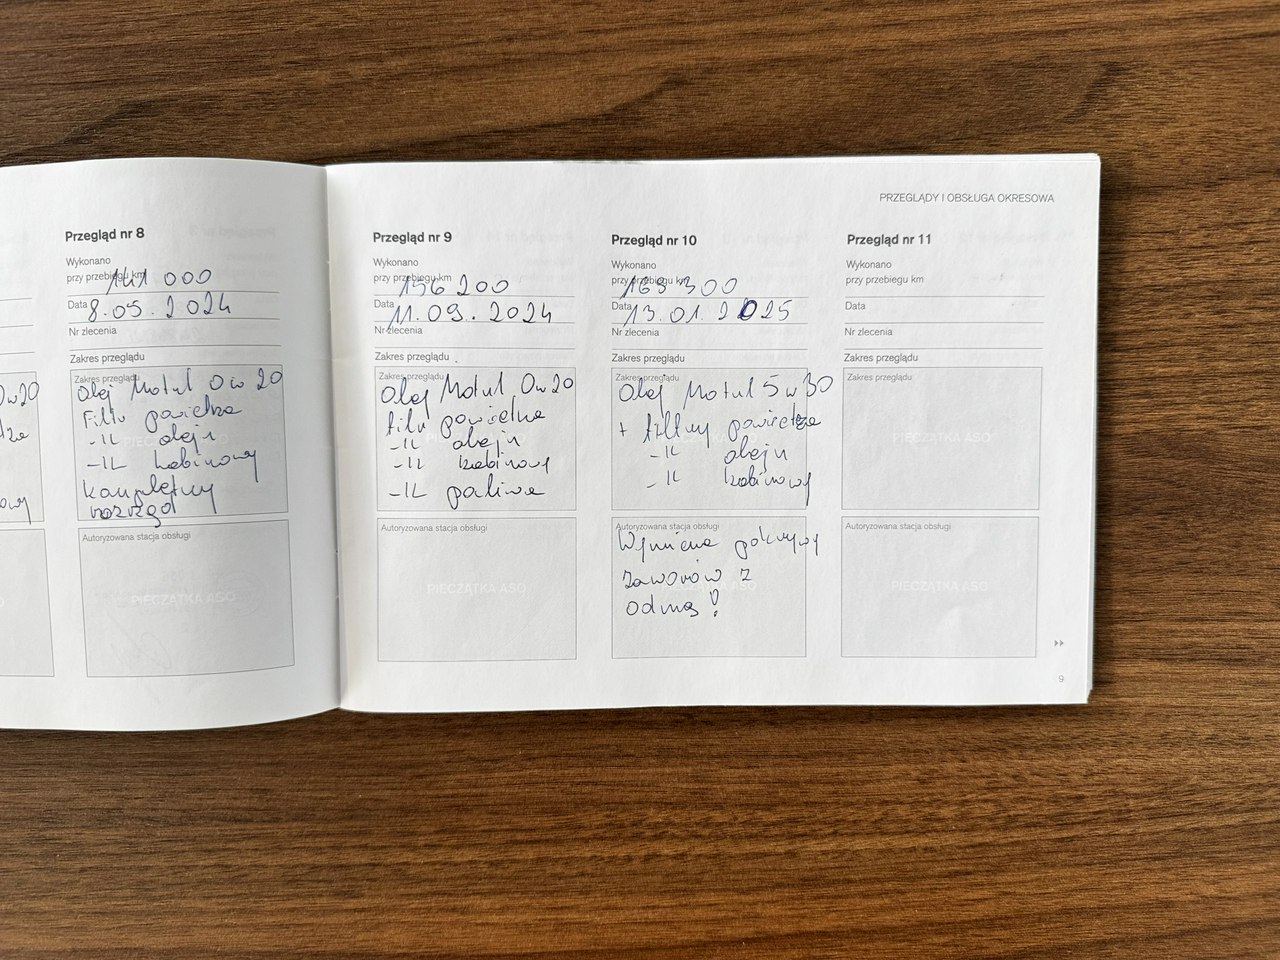 PRZEGLĄDY I OBSŁUGA OKRESOWA
0w20
Przegląd nr 8
Wykonano
przy przebiegu km 141 000
Data 8.05.2024
Nr zlecenia
Zakres przeglądu
Zakres przeglądu
Olej Motul 0w20
Filtr powietrza
-11- oleju
-11- kabinowy
kompletny
rozrząd
PIECZĄTKA ASO
Autoryzowana stacja obsługi
PIECZĄTKA ASO
Przegląd nr 9
Wykonano
przy przebiegu km 156 200
Data 11.09.2024
Nr zlecenia
Zakres przeglądu
Zakres przeglądu
Olej Motul 0w20
filtr powietrza
-11- oleju
-11- kabinowy
-11- paliwa
PIECZĄTKA ASO
Autoryzowana stacja obsługi
PIECZĄTKA ASO
Przegląd nr 10
Wykonano
przy przebiegu km 169 300
Data 13.01.2025
Nr zlecenia
Zakres przeglądu
Zakres przeglądu
Olej Motul 5w30
+ filtry powietrza
-11- oleju
-11- kabinowy
PIECZĄTKA ASO
Autoryzowana stacja obsługi
Wymiana pokrywy
zaworów z
odmą!
PIECZĄTKA ASO
Przegląd nr 11
Wykonano
przy przebiegu km
Data
Nr zlecenia
Zakres przeglądu
Zakres przeglądu
PIECZĄTKA ASO
Autoryzowana stacja obsługi
PIECZĄTKA ASO
9